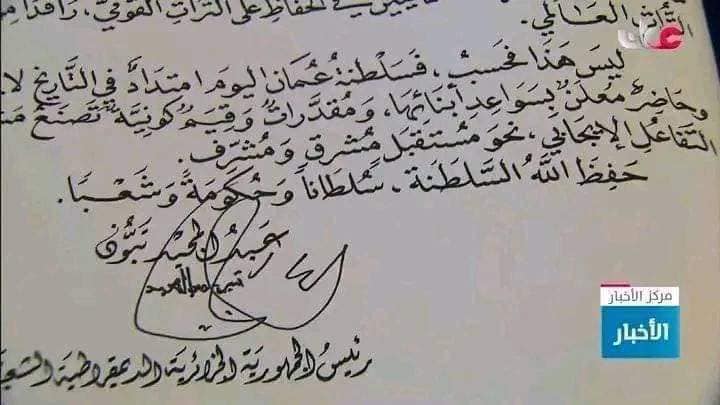 في الحفاظ على التراث القومي، رافدا من
التراث العالمي.
ليس هذا فحسب، فسلطنة عُمان اليوم امتدادٌ في التاريخ
وحاضرٌ معلن بسواعد أبنائها، ومُقدّراتٌ وقيمٌ كونيةٌ تصنعُ
التفاعل الإيجابي، نحو مستقبل مشرق ومشرّف.
حفظ اللهُ السلطنة، سُلطاناً وحُكومةً وشعبا.
عبدُ المجيد تبّون
رئيسُ الجمهورية الجزائرية الديمقراطية
مركز الأخبار
الأخبار